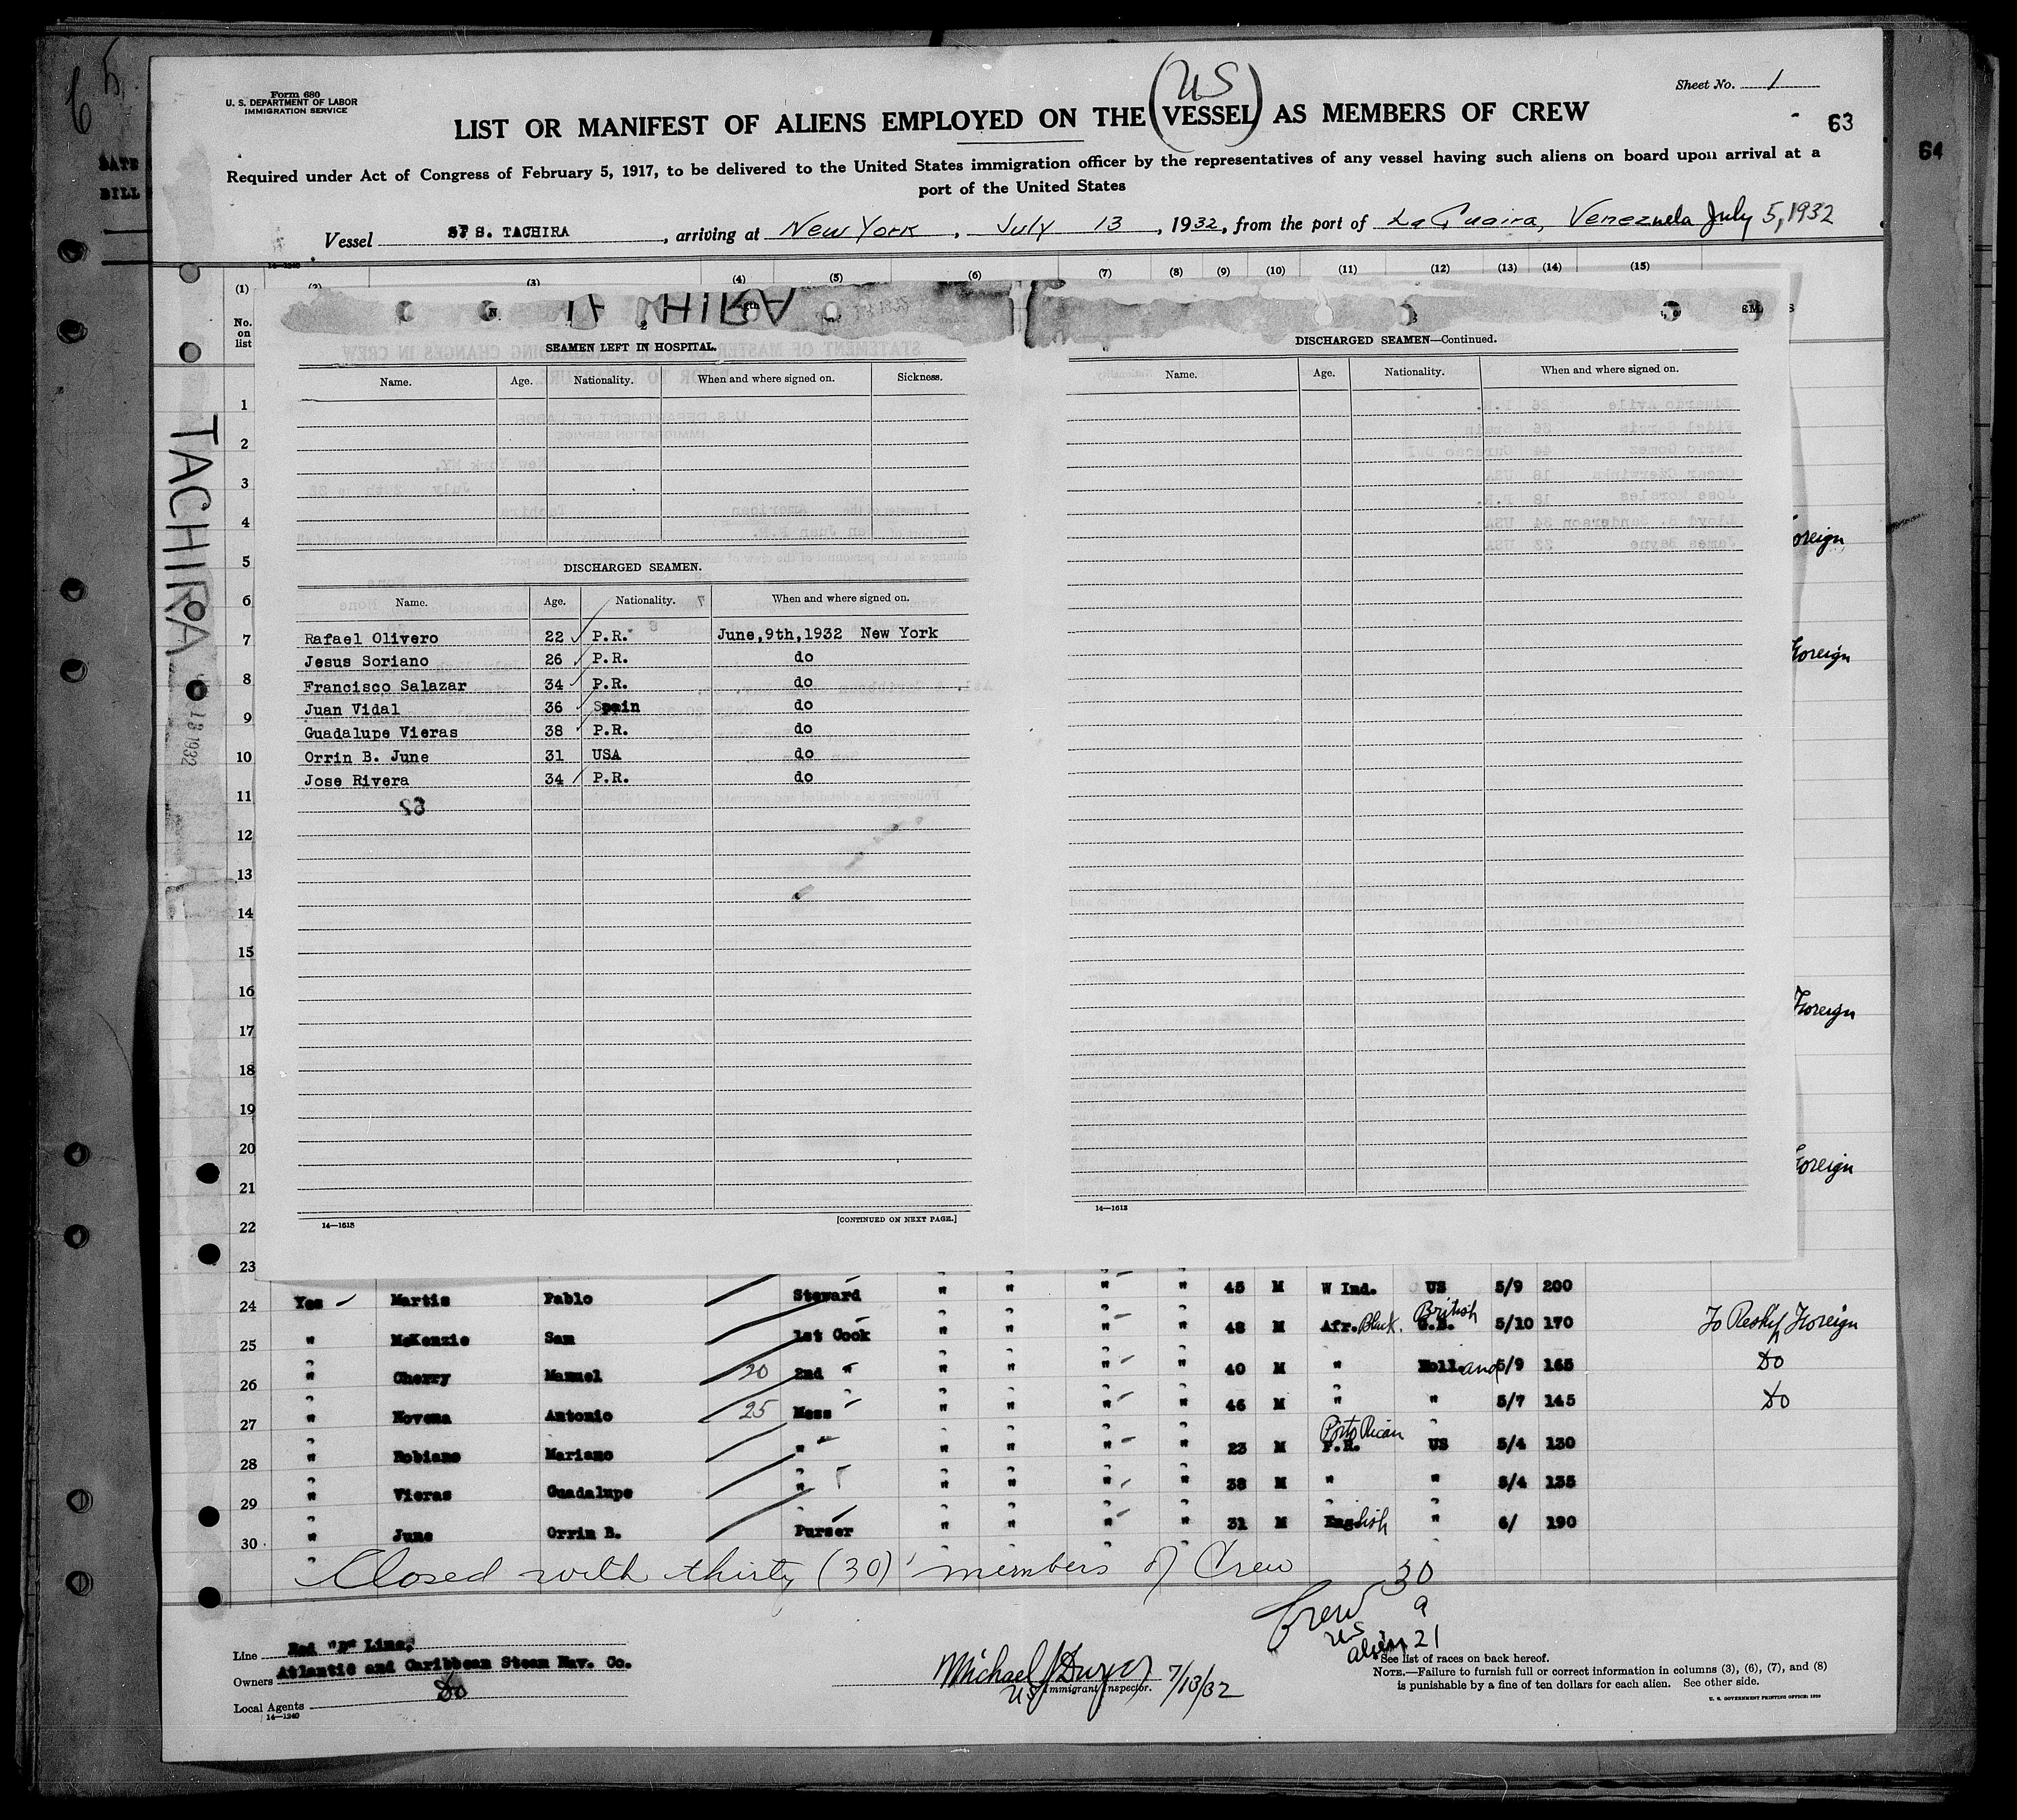 Form 680
U. S. DEPARTMENT OF LABOR
IMMIGRATION SERVICE
(US)
Sheet No. 1
LIST OR MANIFEST OF ALIENS EMPLOYED ON THE VESSEL AS MEMBERS OF CREW
63
64
Required under Act of Congress of February 5, 1917, to be delivered to the United States immigration officer by the representatives of any vessel having such aliens on board upon arrival at a
port of the United States
Vessel S. TACHIRA, arriving at New York, July 13, 1932, from the port of La Guaira, Venezuela July 5, 1932
(1) (3) (4) (5) (6) (7) (8) (9) (10) (11) (12) (13) (14) (15)
No. on list
TACHIRA
SEAMEN LEFT IN HOSPITAL.
Name. Age. Nationality. When and where signed on. Sickness.
DISCHARGED SEAMEN.
Name. Age. Nationality. When and where signed on.
Rafael Olivero 22 P.R. June,9th,1932 New York
Jesus Soriano 26 P.R. do
Francisco Salazar 34 P.R. do
Juan Vidal 36 Spain do
Guadalupe Vieras 38 P.R. do
Orrin B. June 31 USA do
Jose Rivera 34 P.R. do
14—1613
[CONTINUED ON NEXT PAGE.]
DISCHARGED SEAMEN—Continued.
Name. Age. Nationality. When and where signed on.
14—1613
1
2
3
4
5
6
7
8
9
10
11
12
13
14
15
16
17
18
19
20
21
22
23
oreign
Foreign
Foreign
Foreign
24 Yes Martis Pablo Steward " " " " 45 M W Ind. US 5/9 200
25 " McKenzie Sam 1st Cook " " " " 48 M Afr. Black. British G.B. 5/10 170 To Reship Foreign
26 " Cherry Manuel 20 2nd " " " " " 40 M " Holland 5/9 165 Do
27 " Novena Antonio 25 Mess " " " " 46 M " " 5/7 145 Do
28 " Robiano Mariano " " " " " 23 M Porto Rican P.R. US 5/4 130
29 " Vieras Guadalupe " " " " " 38 M " " 5/4 135
30 " June Orrin B. Purser " " " " 31 M English " 6/ 190
Closed with thirty (30) members of Crew
Crew 30
US 9
alien 21
Line Red "D" Line.
Owners Atlantic and Caribbean Steam Nav. Co.
Local Agents Do
14—1240
Michael J Dwyer 7/13/32
US Immigrant Inspector.
See list of races on back hereof.
NOTE.—Failure to furnish full or correct information in columns (3), (6), (7), and (8)
is punishable by a fine of ten dollars for each alien. See other side.
U. S. GOVERNMENT PRINTING OFFICE: 1929